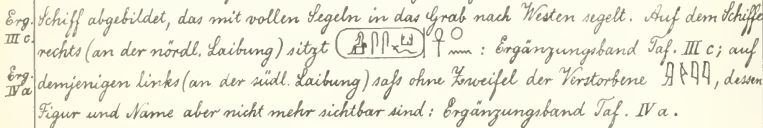 Erg. III c. Schiff abgebildet, das mit vollen Segeln in das Grab nach Westen segelt. Auf dem Schiffe
rechts (an der nördl. Laibung) sitzt : Ergänzungsband Taf. III c; auf
Erg. IV a demjenigen links (an der südl. Laibung) saß ohne Zweifel der Verstorbene , dessen
Figur und Name aber nicht mehr sichtbar sind : Ergänzungsband Taf. IV a.